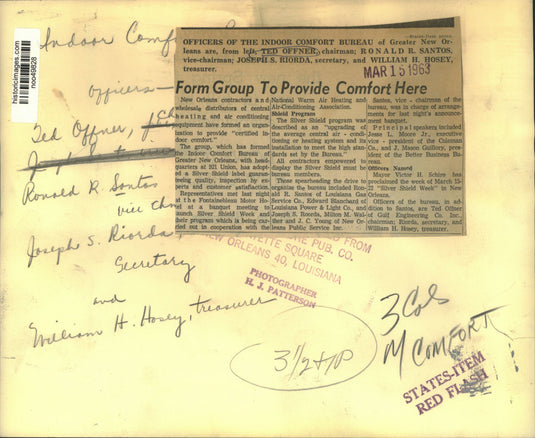 historicimages.com
noo49828
Indoor Comfort
officers—
Ted Offner,
Ronald R. Santos
vice
Joseph S. Riorda
Secretary
and
William H. Hosey, treasurer
—States-Item photo.
OFFICERS OF THE INDOOR COMFORT BUREAU of Greater New Or-
leans are, from left, TED OFFNER, chairman; RONALD R. SANTOS,
vice-chairman; JOSEPH S. RIORDA, secretary, and WILLIAM H. HOSEY,
treasurer.
MAR 15 1963
Form Group To Provide Comfort Here
New Orleans contractors and
wholesale distributors of central
heating and air conditioning
equipment have formed an organ-
ization to provide "certified in-
door comfort."
The group, which has formed
the Indoor Comfort Bureau of
Greater New Orleans, with head-
quarters at 821 Union, has adopt-
ed a Silver Shield label guaran-
teeing quality, inspection by ex-
perts and customer satisfaction.
Representatives met last night
at the Fontainebleau Motor Ho-
tel at a banquet meeting to
launch Silver Shield Week and
their program which is being car-
ried out in cooperation with the
National Warm Air Heating and
Air-Conditioning Association.
Shield Program
The Silver Shield program was
described as an "upgrading of
the average central air - condi-
tioning or heating system and its
installation to meet the high stan-
dards set by the Bureau."
All contractors empowered to
display the Silver Shield must be
bureau members.
Those spearheading the drive to
organize the bureau included Ron-
ald R. Santos of Louisiana Gas
Service Co., Edward Blanchard of
Louisiana Power & Light Co., and
Joseph S. Riorda, Milton M. Wal-
ther and J. C. Young of New Or-
leans Public Service Inc.
Santos, vice - chairman of the
bureau, was in charge of arrange-
ments for last night's announce-
ment banquet.
Principal speakers included
Jesse L. Moore Jr., executive
vice - president of the Chairman
Co., and J. Mason Guillory, presi-
dent of the Better Business Bu-
reau.
Officers Named
Mayor Victor H. Schiro has
proclaimed the week of March 15-
22 "Silver Shield Week" in New
Orleans.
Officers of the bureau, in ad-
dition to Santos, are Ted Offner
of Gulf Engineering Co. Inc.,
chairman; Riorda, secretary, and
William H. Hosey, treasurer.
FROM
PUB. CO.
SQUARE
NEW ORLEANS 40, LOUISIANA
PHOTOGRAPHER
H. J. PATTERSON
3 Cols
M COMFORT
STATES-ITEM
RED FLASH